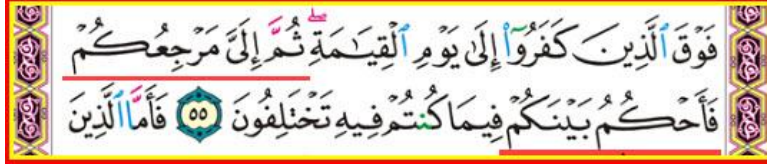 فَوْقَ ٱلَّذِينَ كَفَرُوٓا۟ إِلَىٰ يَوْمِ ٱلْقِيَـٰمَةِ ۖ ثُمَّ إِلَىَّ مَرْجِعُكُمْ
فَأَحْكُمُ بَيْنَكُمْ فِيمَا كُنتُمْ فِيهِ تَخْتَلِفُونَ ٥٥ فَأَمَّا ٱلَّذِينَ